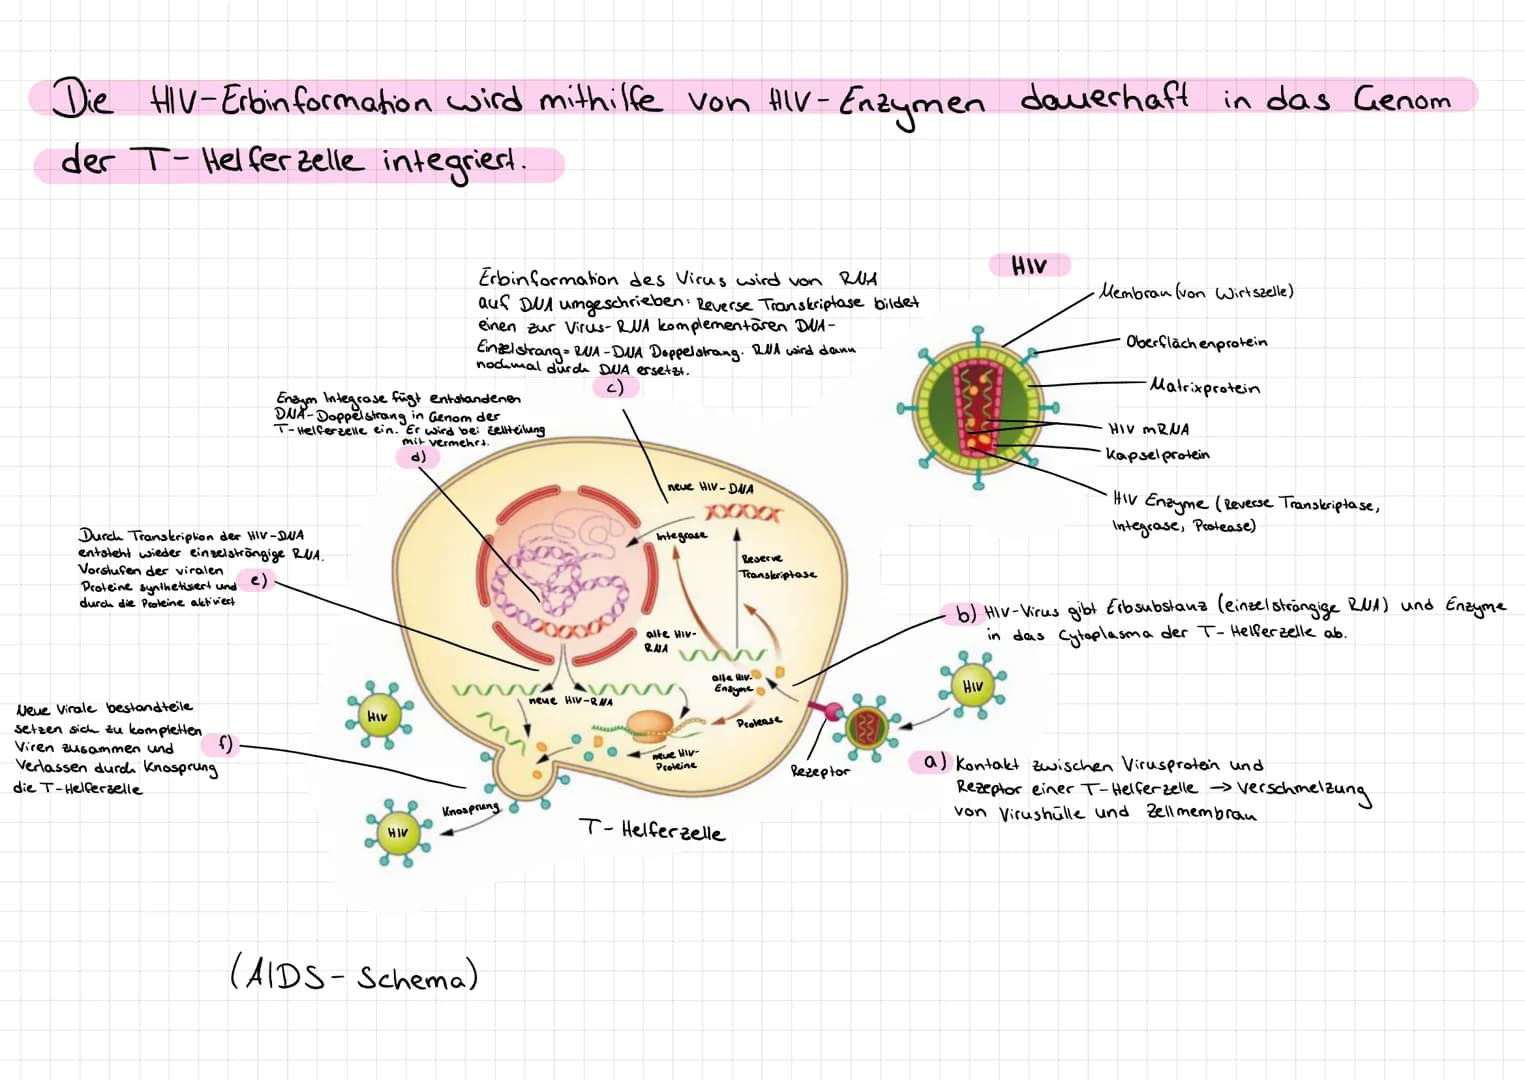 Die HIV-Erbinformation wird mithilfe von HIV-Enzymen dauerhaft in das Genom
der T-Helferzelle integriert.
HIV
Membran (von Wirtszelle)
Oberflächenprotein
Matrixprotein
HIV mRNA
Kapselprotein
HIV Enzyme (Reverse Transkriptase,
Integrase, Protease)
Erbinformation des Virus wird von RNA
auf DNA umgeschrieben: Reverse Transkriptase bildet
einen zur Virus-RNA komplementären DNA-
Einzelstrang = RNA-DNA Doppelstrang. RNA wird dann
nochmal durch DNA ersetzt.
c)
Enzym Integrase fügt entstandenen
DNA-Doppelstrang in Genom der
T-Helferzelle ein. Er wird bei Zellteilung
mit vermehrt.
d)
neue HIV-DNA
Integrase
Reserve
Transkriptase
Durch Transkription der HIV-DNA
entsteht wieder einzelsträngige RNA.
Vorstufen der viralen
Proteine synthetisiert und
durch die Proteine aktiviert
e)
b) HIV-Virus gibt Erbsubstanz (einzelsträngige RNA) und Enzyme
in das Cytoplasma der T-Helferzelle ab.
alte HIV-
RNA
alte HIV-
Enzyme
neue HIV-RNA
Protease
neue HIV-
Proteine
HIV
HIV
Rezeptor
a) Kontakt zwischen Virusprotein und
Rezeptor einer T-Helferzelle → Verschmelzung
von Virushülle und Zellmembran
Neue Virale bestandteile
setzen sich zu kompletten
Viren zusammen und
Verlassen durch Knospung
die T-Helferzelle
f)
Knospung
HIV
T-Helferzelle
(AIDS-Schema)